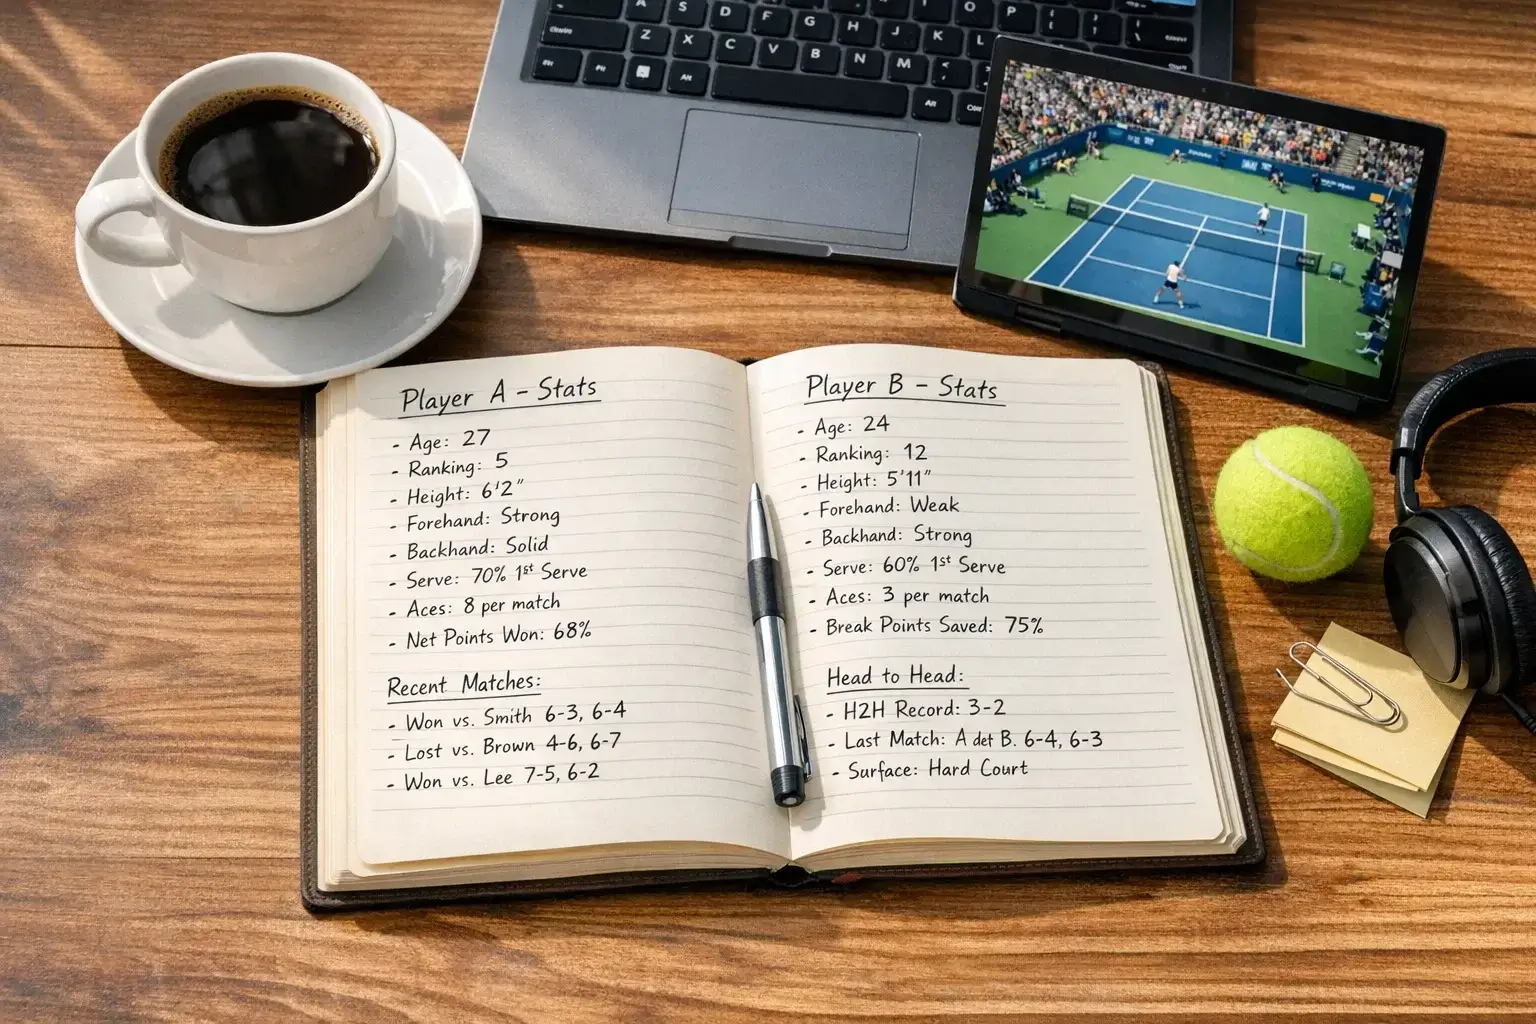 A S D F G H J K L
Z X C V B N M
Alt
Player A - Stats
- Age: 27
- Ranking: 5
- Height: 6'2"
- Forehand: Strong
- Backhand: Solid
- Serve: 70% 1st Serve
- Aces: 8 per match
- Net Points Won: 68%
Recent Matches:
- Won vs. Smith 6-3, 6-4
- Lost vs. Brown 4-6, 6-7
- Won vs. Lee 7-5, 6-2
Player B - Stats
- Age: 24
- Ranking: 12
- Height: 5'11"
- Forehand: Weak
- Backhand: Strong
- Serve: 60% 1st Serve
- Aces: 3 per match
- Break Points Saved: 75%
Head to Head:
- H2H Record: 3-2
- Last Match: A def B. 6-4, 6-3
- Surface: Hard Court